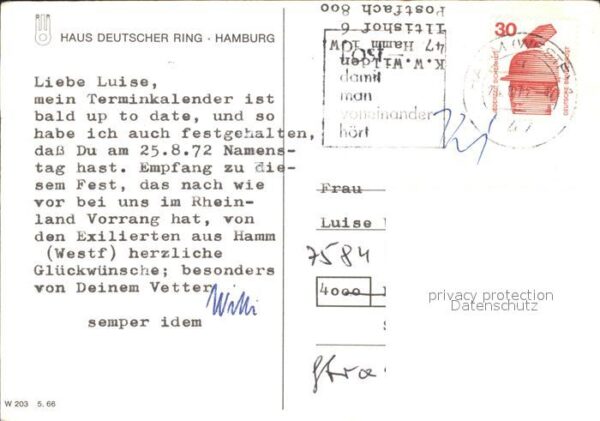 HAUS DEUTSCHER RING · HAMBURG
Liebe Luise,
mein Terminkalender ist
bald up to date, und so
habe ich auch festgehalten,
daß Du am 25.8.72 Namens-
tag hast. Empfang zu die-
sem Fest, das nach wie
vor bei uns im Rhein-
land Vorrang hat, von
den Exilierten aus Hamm
(Westf) herzliche
Glückwünsche; besonders
von Deinem Vetter
Willi
semper idem
W 203 5.66
K.W.Wilden
47 Hamm
Iltishof 6
Postfach 800
damit
man
voneinander
hört
30
DEUTSCHE BUNDESPOST
47
Frau
Luise
7584
4000
Stra
privacy protection
Datenschutz